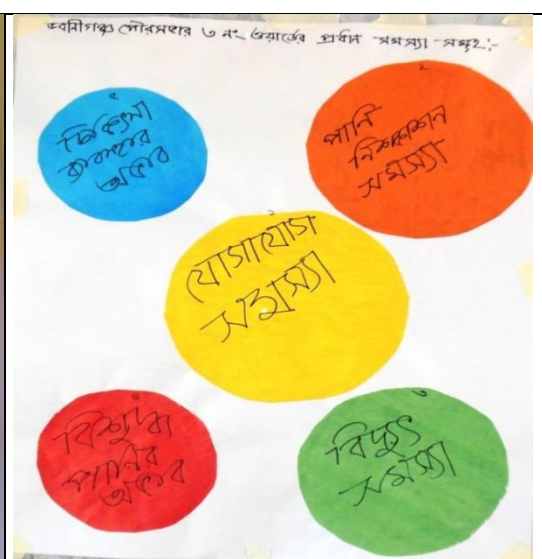 ভবানীগঞ্জ পৌরসভার ৩ নং ওয়ার্ডের প্রধান সমস্যা সমূহ:-
চিকিৎসা
ব্যবস্থার
অভাব
২
পানি
নিষ্কাশন
সমস্যা
১
যোগাযোগ
সমস্যা
৪
বিশুদ্ধ
পানির
অভাব
৩
বিদ্যুৎ
সমস্যা